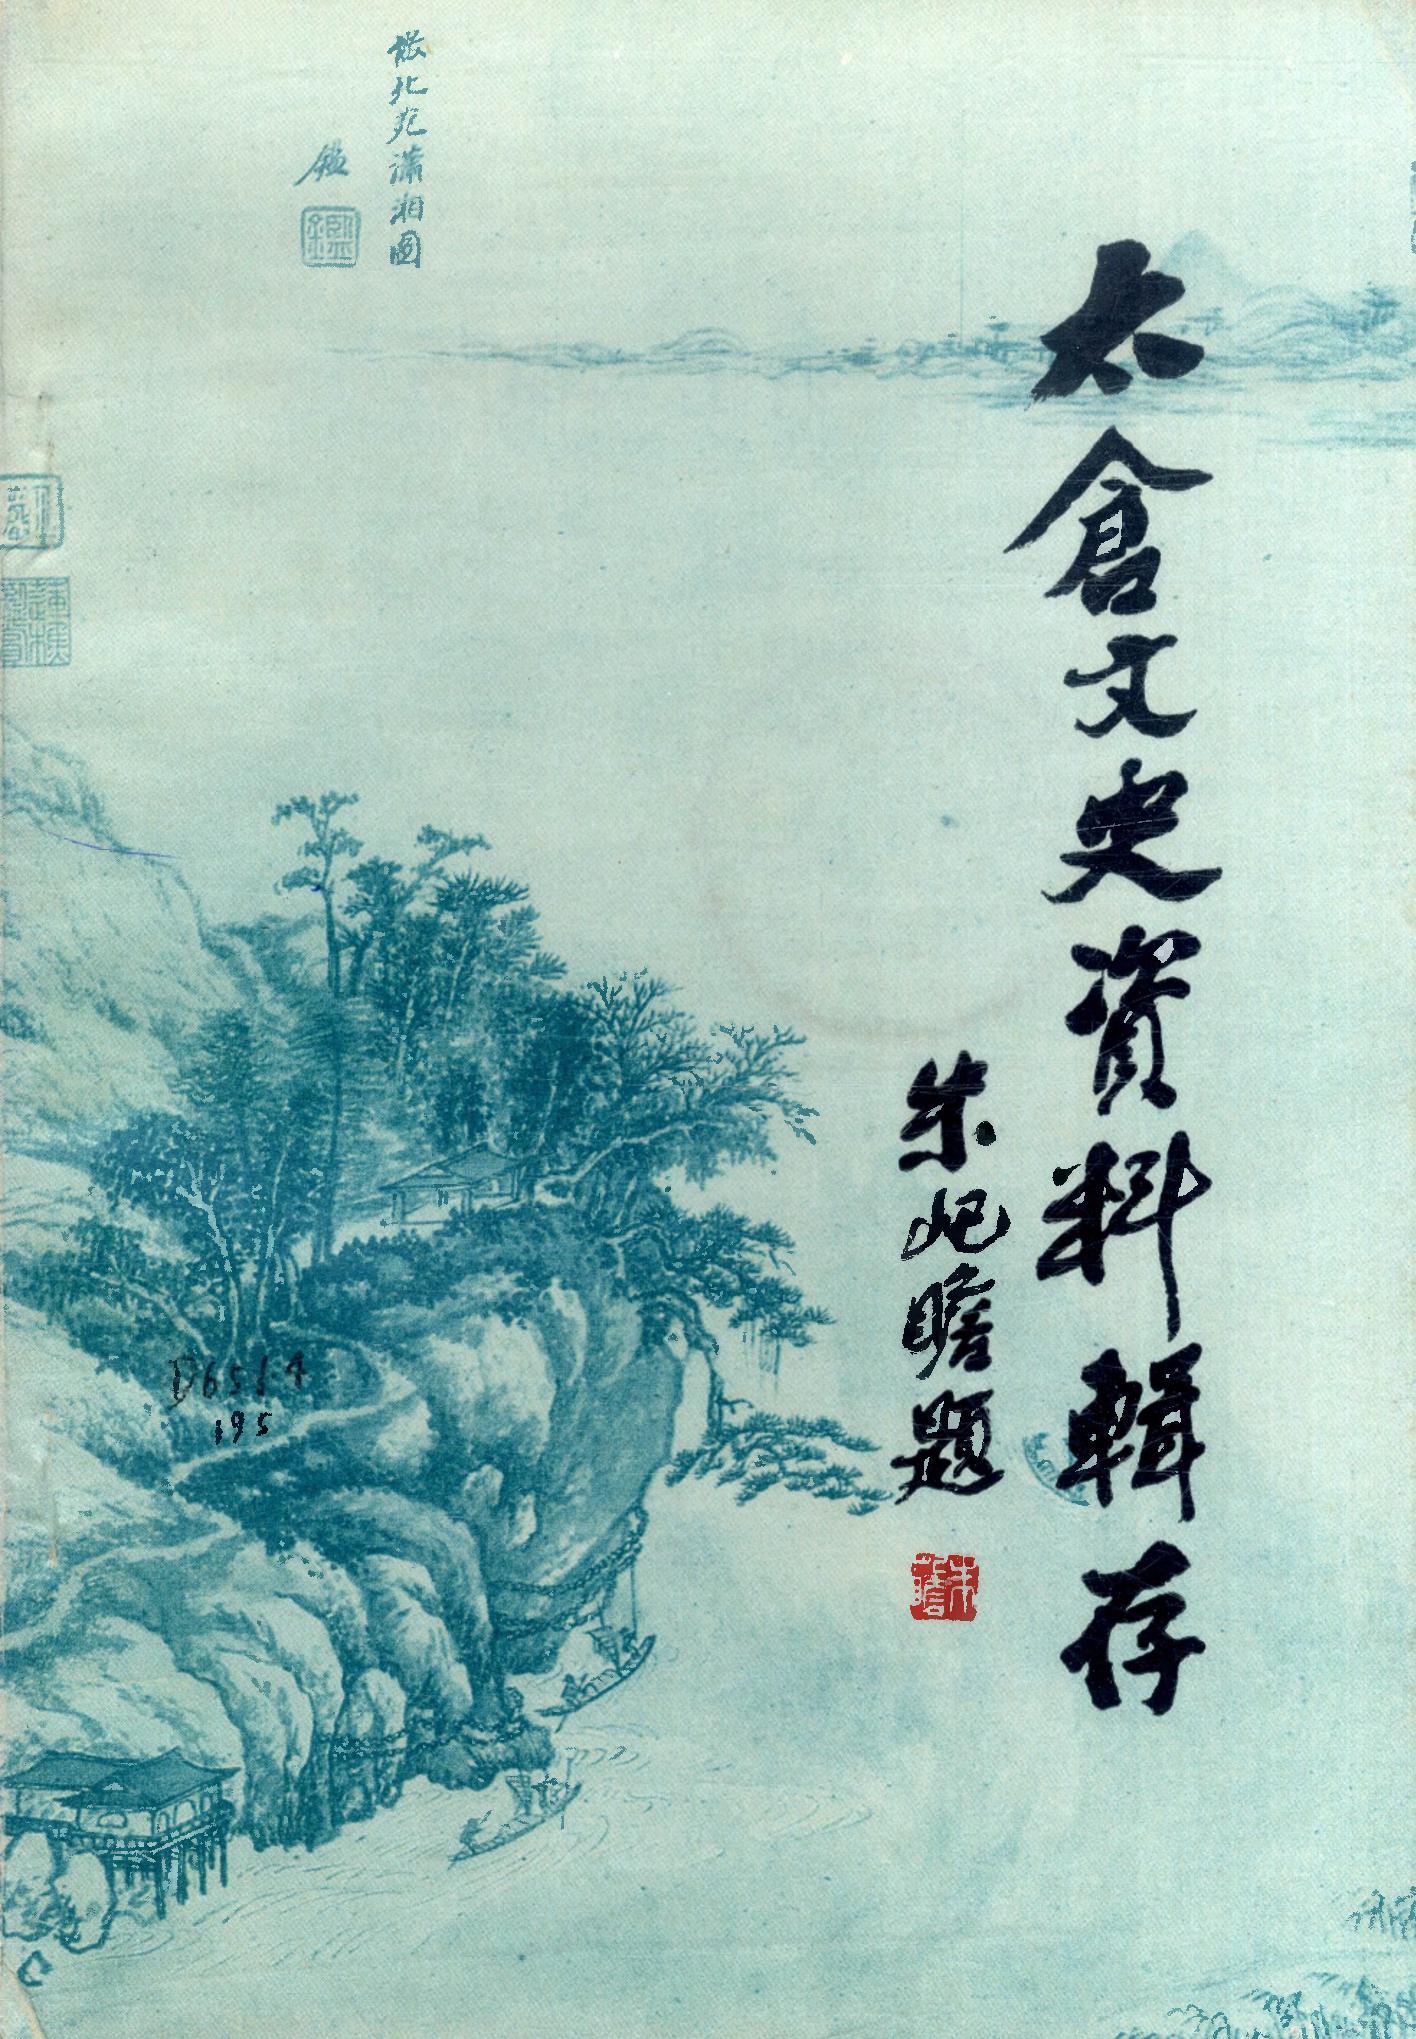 太倉文史資料輯存
朱屺瞻題
倣北苑瀟湘圖
鑑
D651.4
195